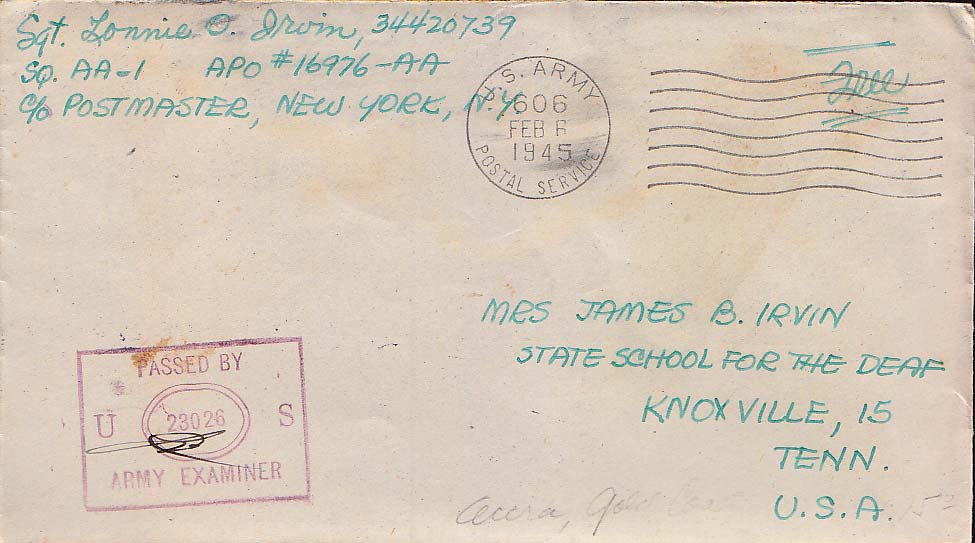 Sgt. Lonnie O. Irvin, 34420739
SQ. AA-1 APO #16976-AA
c/o POSTMASTER, NEW YORK, N.Y.
U.S. ARMY
606
FEB 6
1945
POSTAL SERVICE
Free
MRS JAMES B. IRVIN
STATE SCHOOL FOR THE DEAF
KNOXVILLE, 15
TENN.
U.S.A.
PASSED BY
U 23026 S
ARMY EXAMINER
Accra, Gold